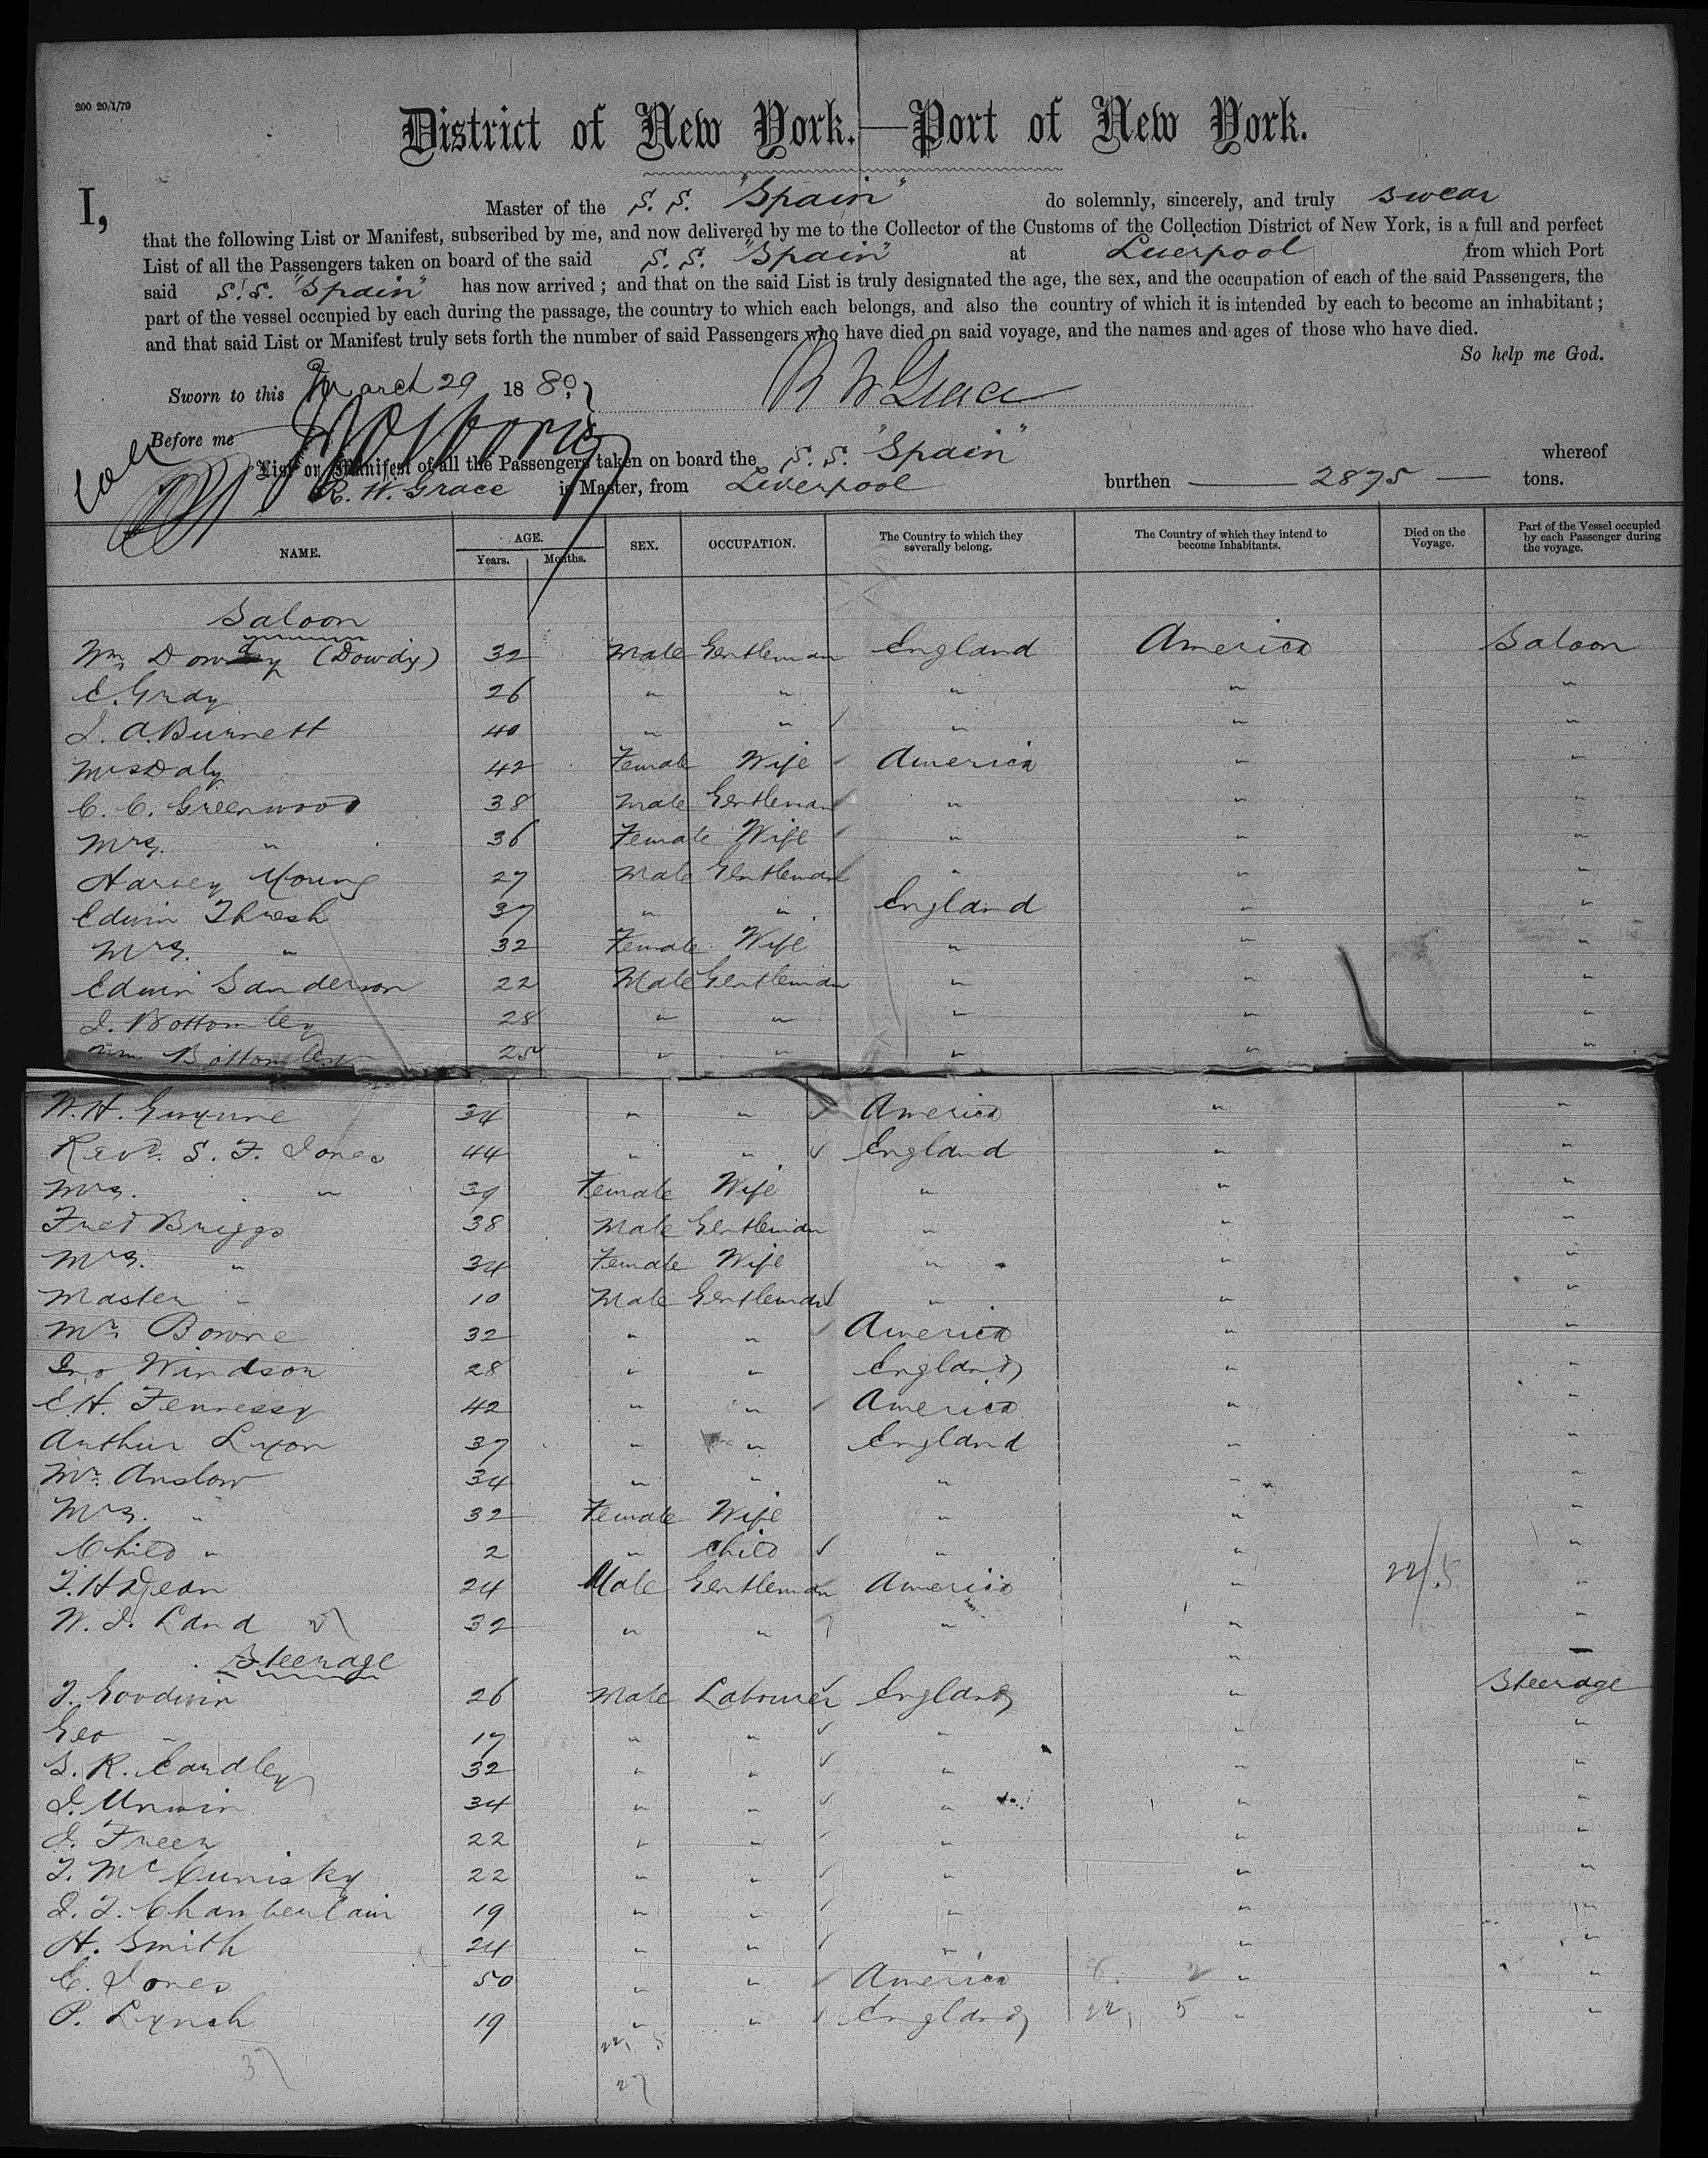 200 20/1/79
District of New York.—Port of New York.
I, Master of the S. S. "Spain" do solemnly, sincerely, and truly swear
that the following List or Manifest, subscribed by me, and now delivered by me to the Collector of the Customs of the Collection District of New York, is a full and perfect
List of all the Passengers taken on board of the said S. S. "Spain" at Liverpool from which Port
said S. S. "Spain" has now arrived; and that on the said List is truly designated the age, the sex, and the occupation of each of the said Passengers, the
part of the vessel occupied by each during the passage, the country to which each belongs, and also the country of which it is intended by each to become an inhabitant;
and that said List or Manifest truly sets forth the number of said Passengers who have died on said voyage, and the names and ages of those who have died.
So help me God.
Sworn to this March 29 1880. R W Grace
Before me
List or Manifest of all the Passengers taken on board the S. S. "Spain" whereof
R. W. Grace is Master, from Liverpool burthen 2875 tons.
NAME. AGE. Years. Months. SEX. OCCUPATION. The Country to which they severally belong. The Country of which they intend to become Inhabitants. Died on the Voyage. Part of the Vessel occupied by each Passenger during the voyage.
Saloon
Wm Dowdy (Dowdy) 32 Male Gentleman England America Saloon
E. Gray 26 " " " " "
J. A. Burnett 40 " " " " "
Mrs Daly 42 Female Wife America " "
C. C. Greenwood 38 Male Gentleman " " "
Mrs. " 36 Female Wife " " "
Harvey Young 27 Male Gentleman " " "
Edwin Thresh 37 " " England " "
Mrs. " 32 Female Wife " " "
Edwin Sanderson 22 Male Gentleman " " "
J. Bottomley 28 " " " " "
Wm Bottomley 25 " " " " "
W. H. Gwynne 34 " " America " "
Revd. S. F. Jones 44 " " England " "
Mrs. " 39 Female Wife " " "
Fred Briggs 38 Male Gentleman " " "
Mrs. " 34 Female Wife " " "
Master " 10 Male Gentleman " " "
Mr. Bowne 32 " " America " "
Jno Windson 28 " " England " "
E. H. Fennessy 42 " " America " "
Arthur Lyon 37 " " England " "
Mr. Anslow 34 " " " " "
Mrs. " 32 Female Wife " " "
Child " 2 " Child " " "
T. H. Dean 24 Male Gentleman America " 22/5 "
W. J. Land 32 " " " " "
Steerage "
T. Goodwin 26 Male Labourer England " Steerage
Geo " 17 " " " " "
S. R. Eardley 32 " " " " "
J. Unwin 34 " " " " "
J. Freer 22 " " " " "
T. McCunisky 22 " " " " "
J. T. Chamberlain 19 " " " " "
H. Smith 24 " " " " "
E. Jones 50 " " America 8. 2 " "
P. Lynch 19 " " England 22, 5 " "
22, 5
27